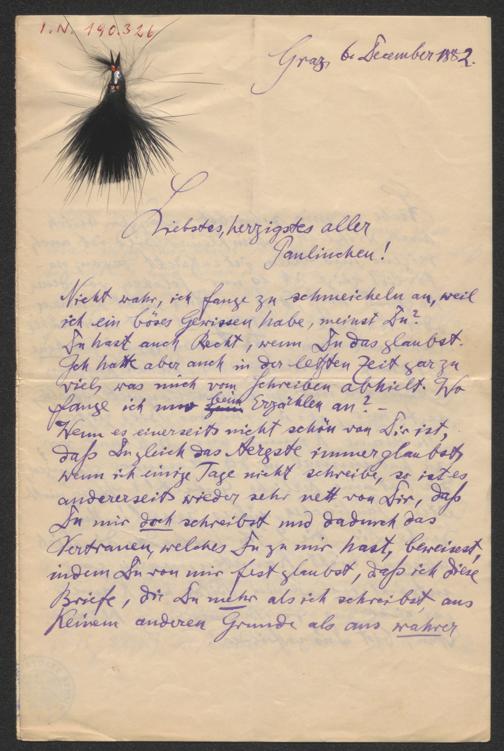 I.N. 190.326
Graz, 6. December 1882.
Liebstes, herzigstes aller
Paulinchen!
Nicht wahr, ich fange zu schmeicheln an, weil
ich ein böses Gewissen habe, meinst Du?
Du hast auch Recht, wenn Du das glaubst.
Ich hatte aber auch in der letzten Zeit gar zu
viel, was mich vom Schreiben abhielt. Wo
fange ich nur beim Erzählen an? –
Wenn es einerseits nicht schön von Dir ist,
daß Du gleich das Aergste immer glaubst,
wenn ich einige Tage nicht schreibe, so ist es
andererseits wieder sehr nett von Dir, daß
Du mir doch schreibst und dadurch das
Vertrauen, welches Du zu mir hast, beweisest,
indem Du von mir fest glaubst, daß ich diese
Briefe, die Du mehr als ich schreibst, aus
keinem anderen Grunde als aus wahrer